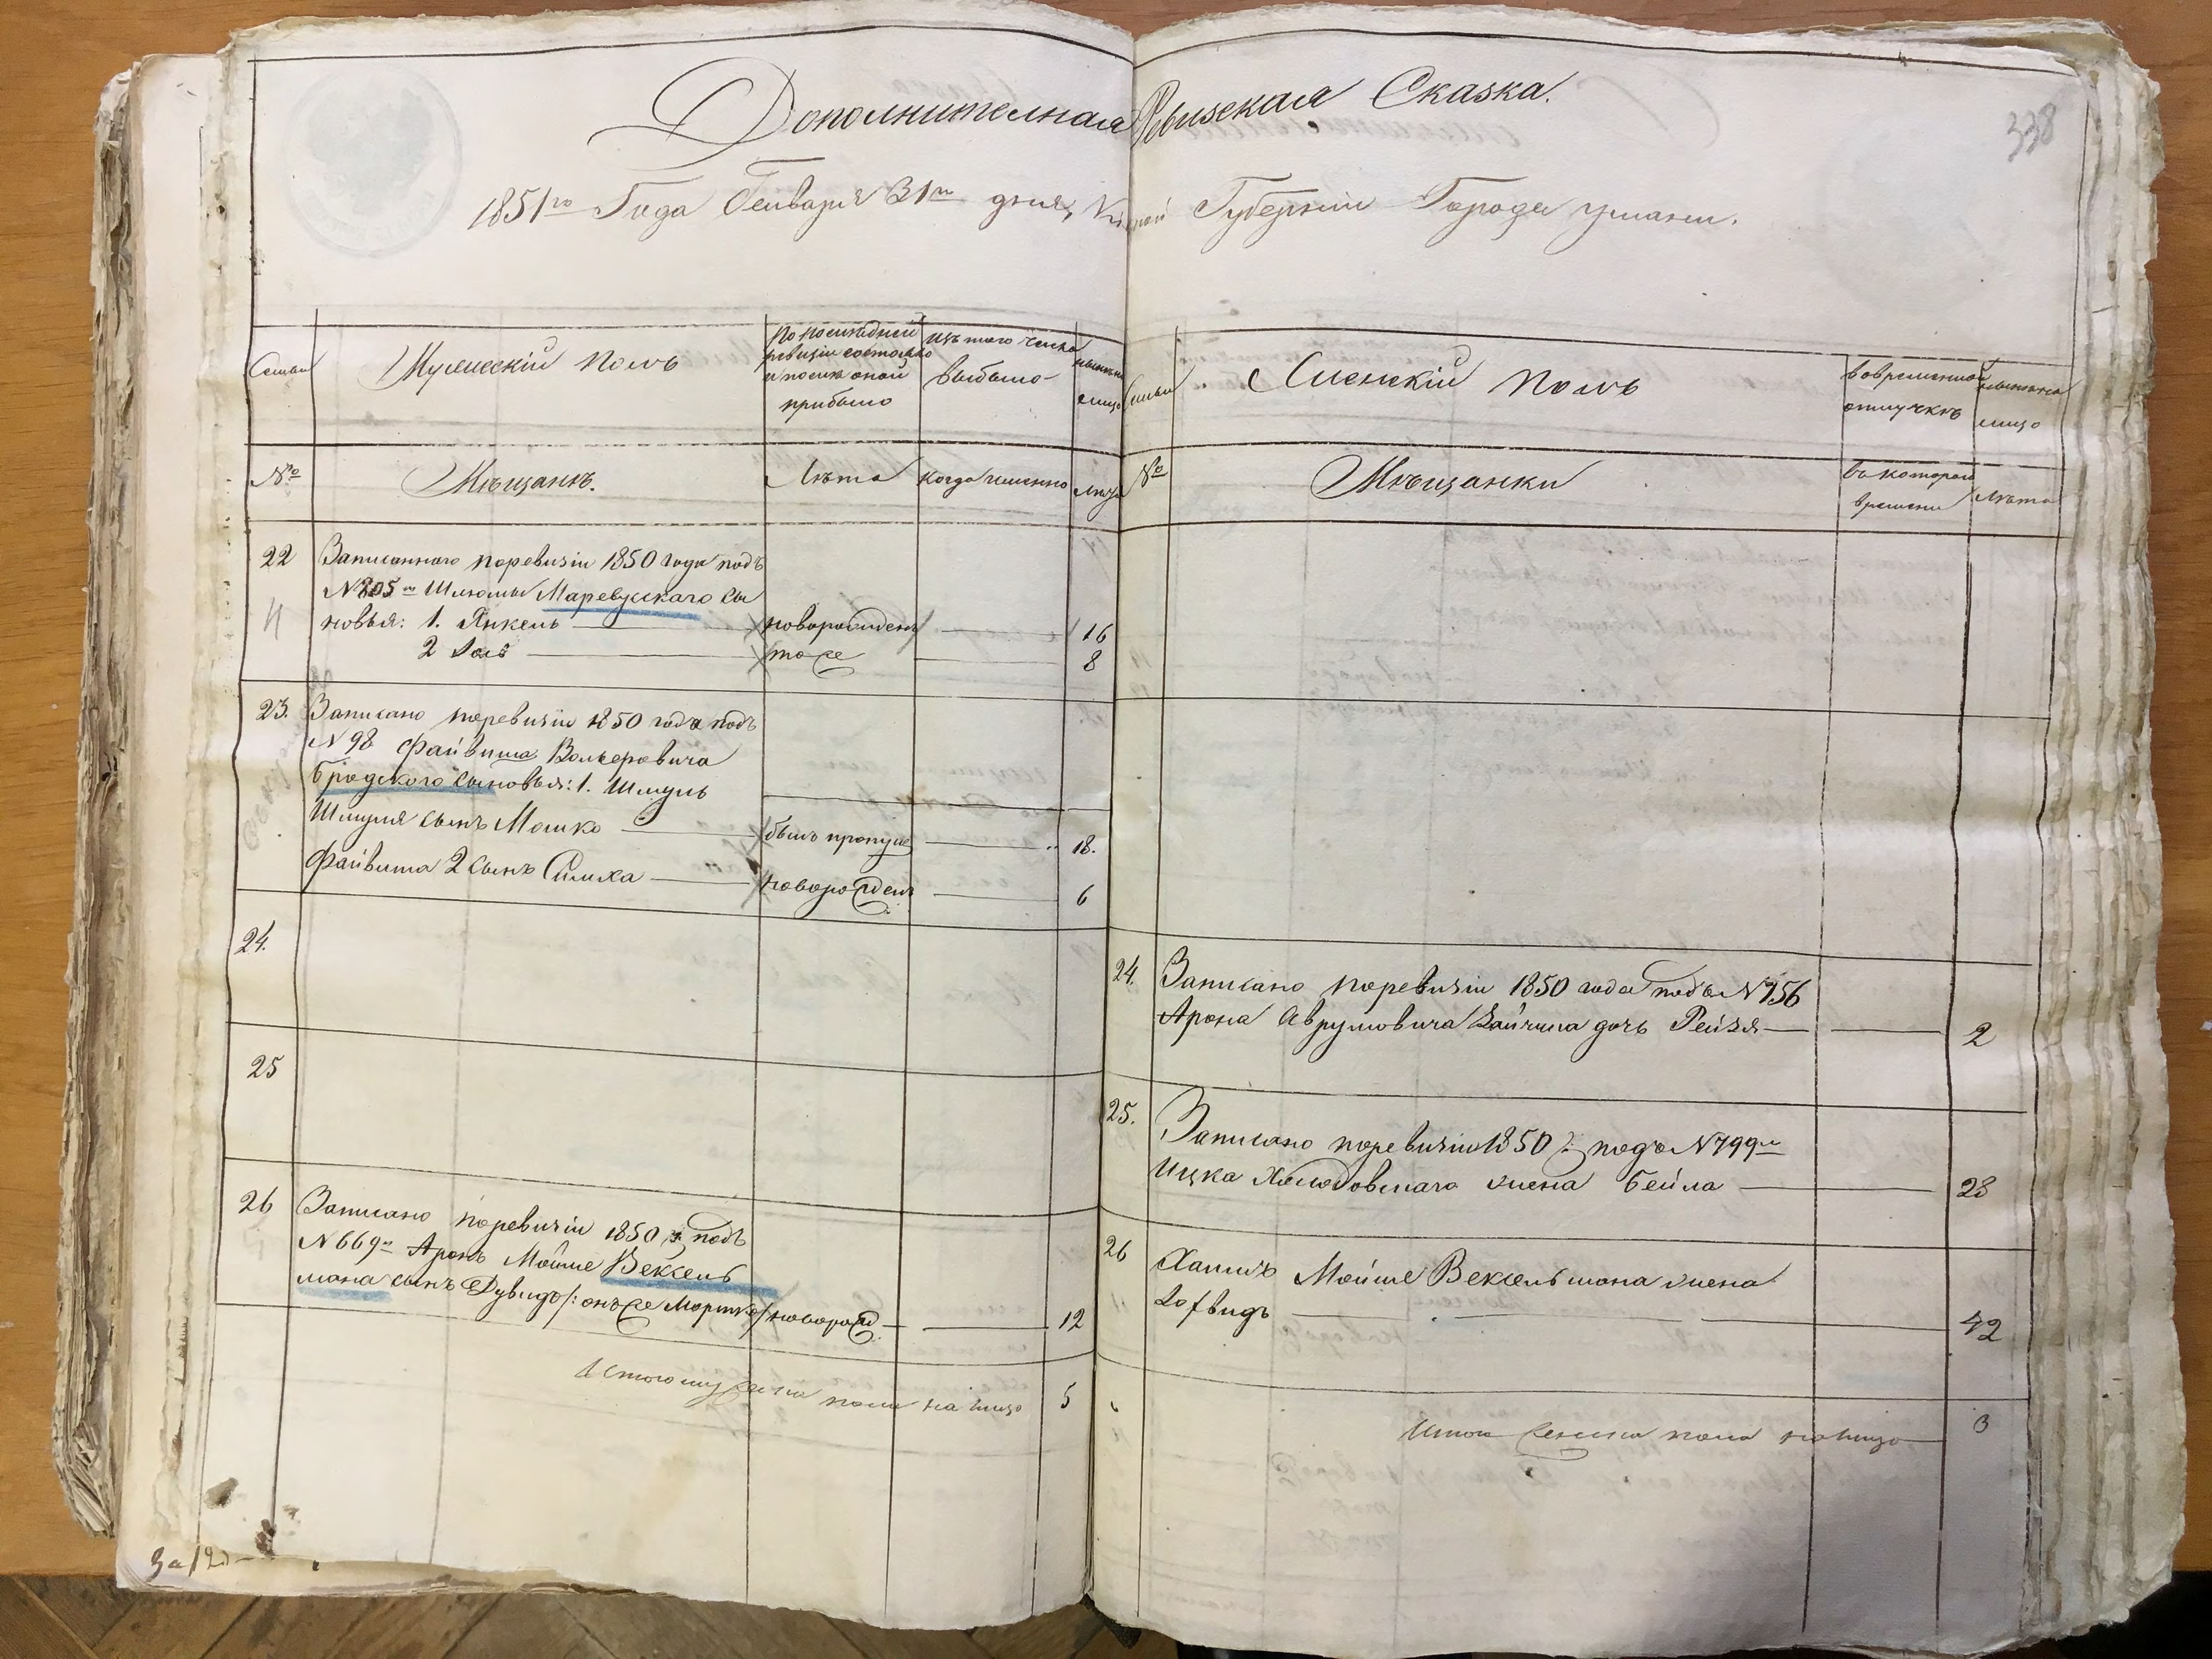 Дополнительная Ревизская Сказка.
338
1851го Года Генваря 31го дня, Кі ской Губерніи Города Умани.
Семьи
Мужескій Полъ
По последней ревизіи состояло и после оной прибыло
изъ того числа выбыло
ныне на лицо
Семьи
Женскій Полъ
во временной отлучкѣ
ныне на лицо
№
Мѣщанъ.
Лѣта
когда именно
Лѣта
№
Мѣщанки
съ которого времени
Лѣта
22
Записанного поревизіи 1850 года подъ
№ 205м Шлиомы Маревускаго сы
новья: 1. Янкель новорожденъ 16
2 тоже 8
23. Записано поревизіи 1850 года подъ
№ 98 Файвиша Вольфовича
Бродского сыновья: 1. Шмуль
Шмуля сынъ Мошко былъ пропущ 18.
Файвиша 2 сынъ Симха новорожденъ 6
24.
24. Записано поревизіи 1850 года подъ № 756
Арона Аврумовича Зайчика дочь Рейзя 2
25
25. Записано поревизіи 1850 г. подъ № 799м
Ицка Холодовскаго жена Бейла 28
26 Записано поревизіи 1850 г. подъ
№ 669м Аронъ Мойше Вексель
мана сынъ Дувидъ /: онъ же Мортко / новорожд 12
26 Мойше Вексельмана жена
42
Итого мужеска пола на лицо 5
Итого женска пола налицо 3
За 12